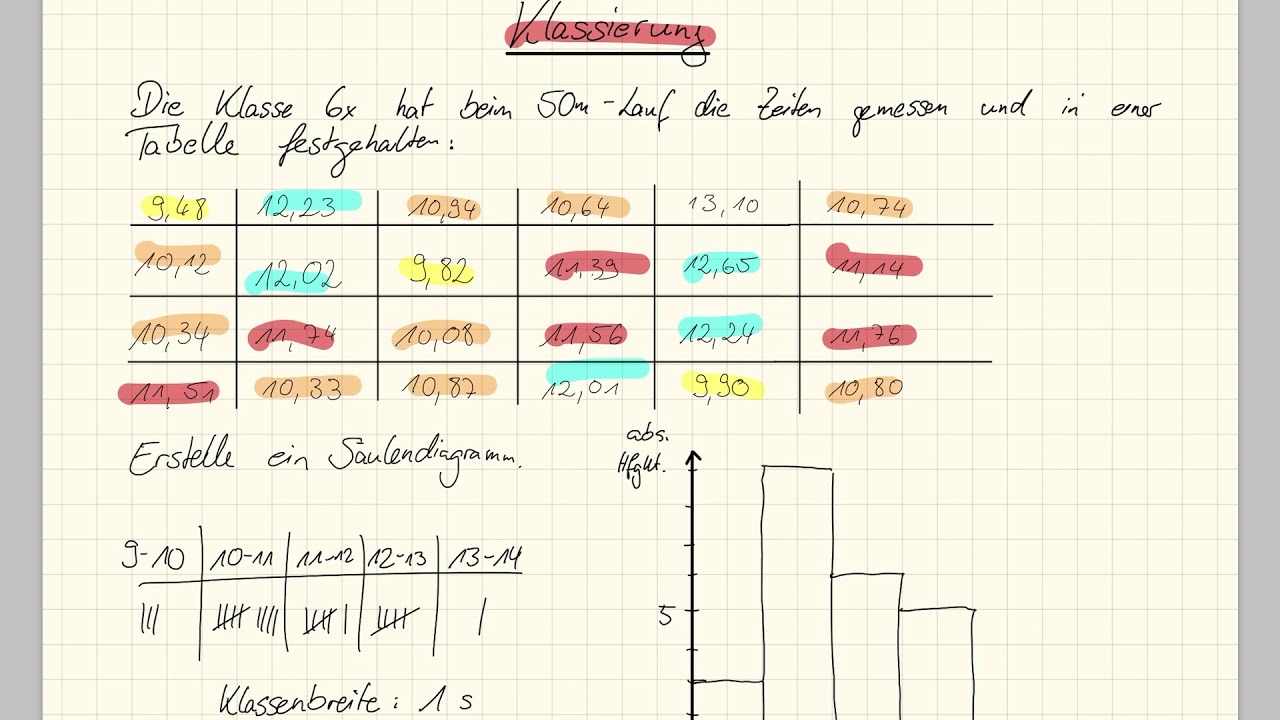 Klassierung
Die Klasse 6x hat beim 50m-Lauf die Zeiten gemessen und in einer
Tabelle festgehalten:
9,48 12,23 10,94 10,64 13,10 10,74
10,12 12,02 9,82 11,39 12,65 11,14
10,34 11,74 10,08 11,56 12,24 11,76
11,51 10,33 10,87 12,01 9,90 10,80
Erstelle ein Säulendiagramm.
abs.
Hfgkt.
9-10 10-11 11-12 12-13 13-14
5
Klassenbreite: 1 s